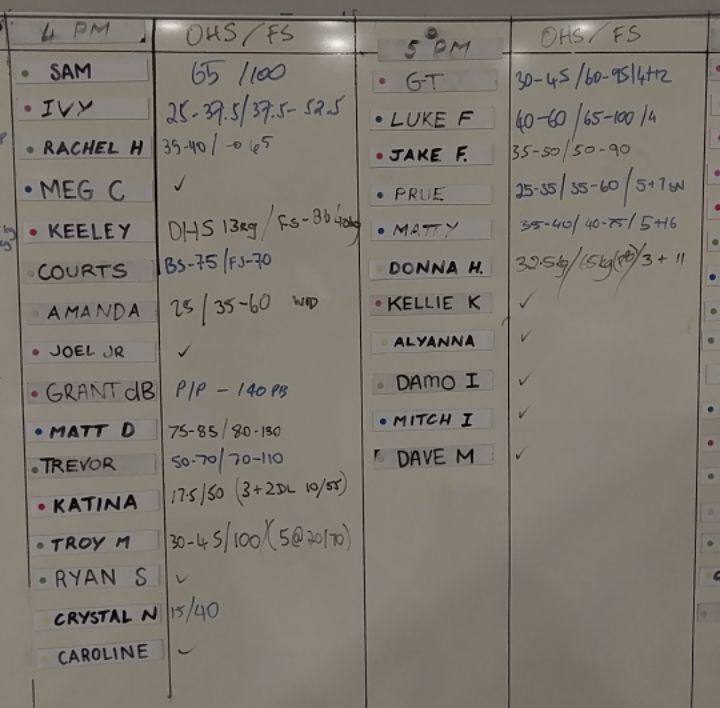 4 PM OHS/FS
SAM 65 /100
IVY 25-37.5/37.5- 52.5
RACHEL H 35-40/ 65
MEG C ✓
KEELEY OHS 13kg / FS- 40kg
COURTS BS-75/FS-70
AMANDA 25 / 35-60
JOEL JR ✓
GRANT dB P/P - 140 PB
MATT D 75-85/80-130
TREVOR 50-70/70-110
KATINA 17.5/50 (3+2DL 10/55)
TROY M 30-45/100 (5@20/70)
RYAN S ✓
CRYSTAL N 15/40
CAROLINE ✓
5 PM OHS/FS
G-T 30-45/60-95/4+12
LUKE F 40-60 /65-100 /4
JAKE F. 35-50/50-90
PRUE 25-35/35-60 / 5+7
MATTY 35-40/ 40-75/ 5+16
DONNA H. 32.5kg/65kg(PB)/3 + 11
KELLIE K ✓
ALYANNA ✓
DAMO I ✓
MITCH I ✓
DAVE M ✓